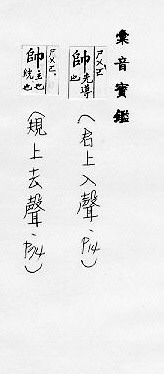 彙音寶鑑
帥先導也
(君上入聲、P14)
帥主也統也
(規上去聲、P34)